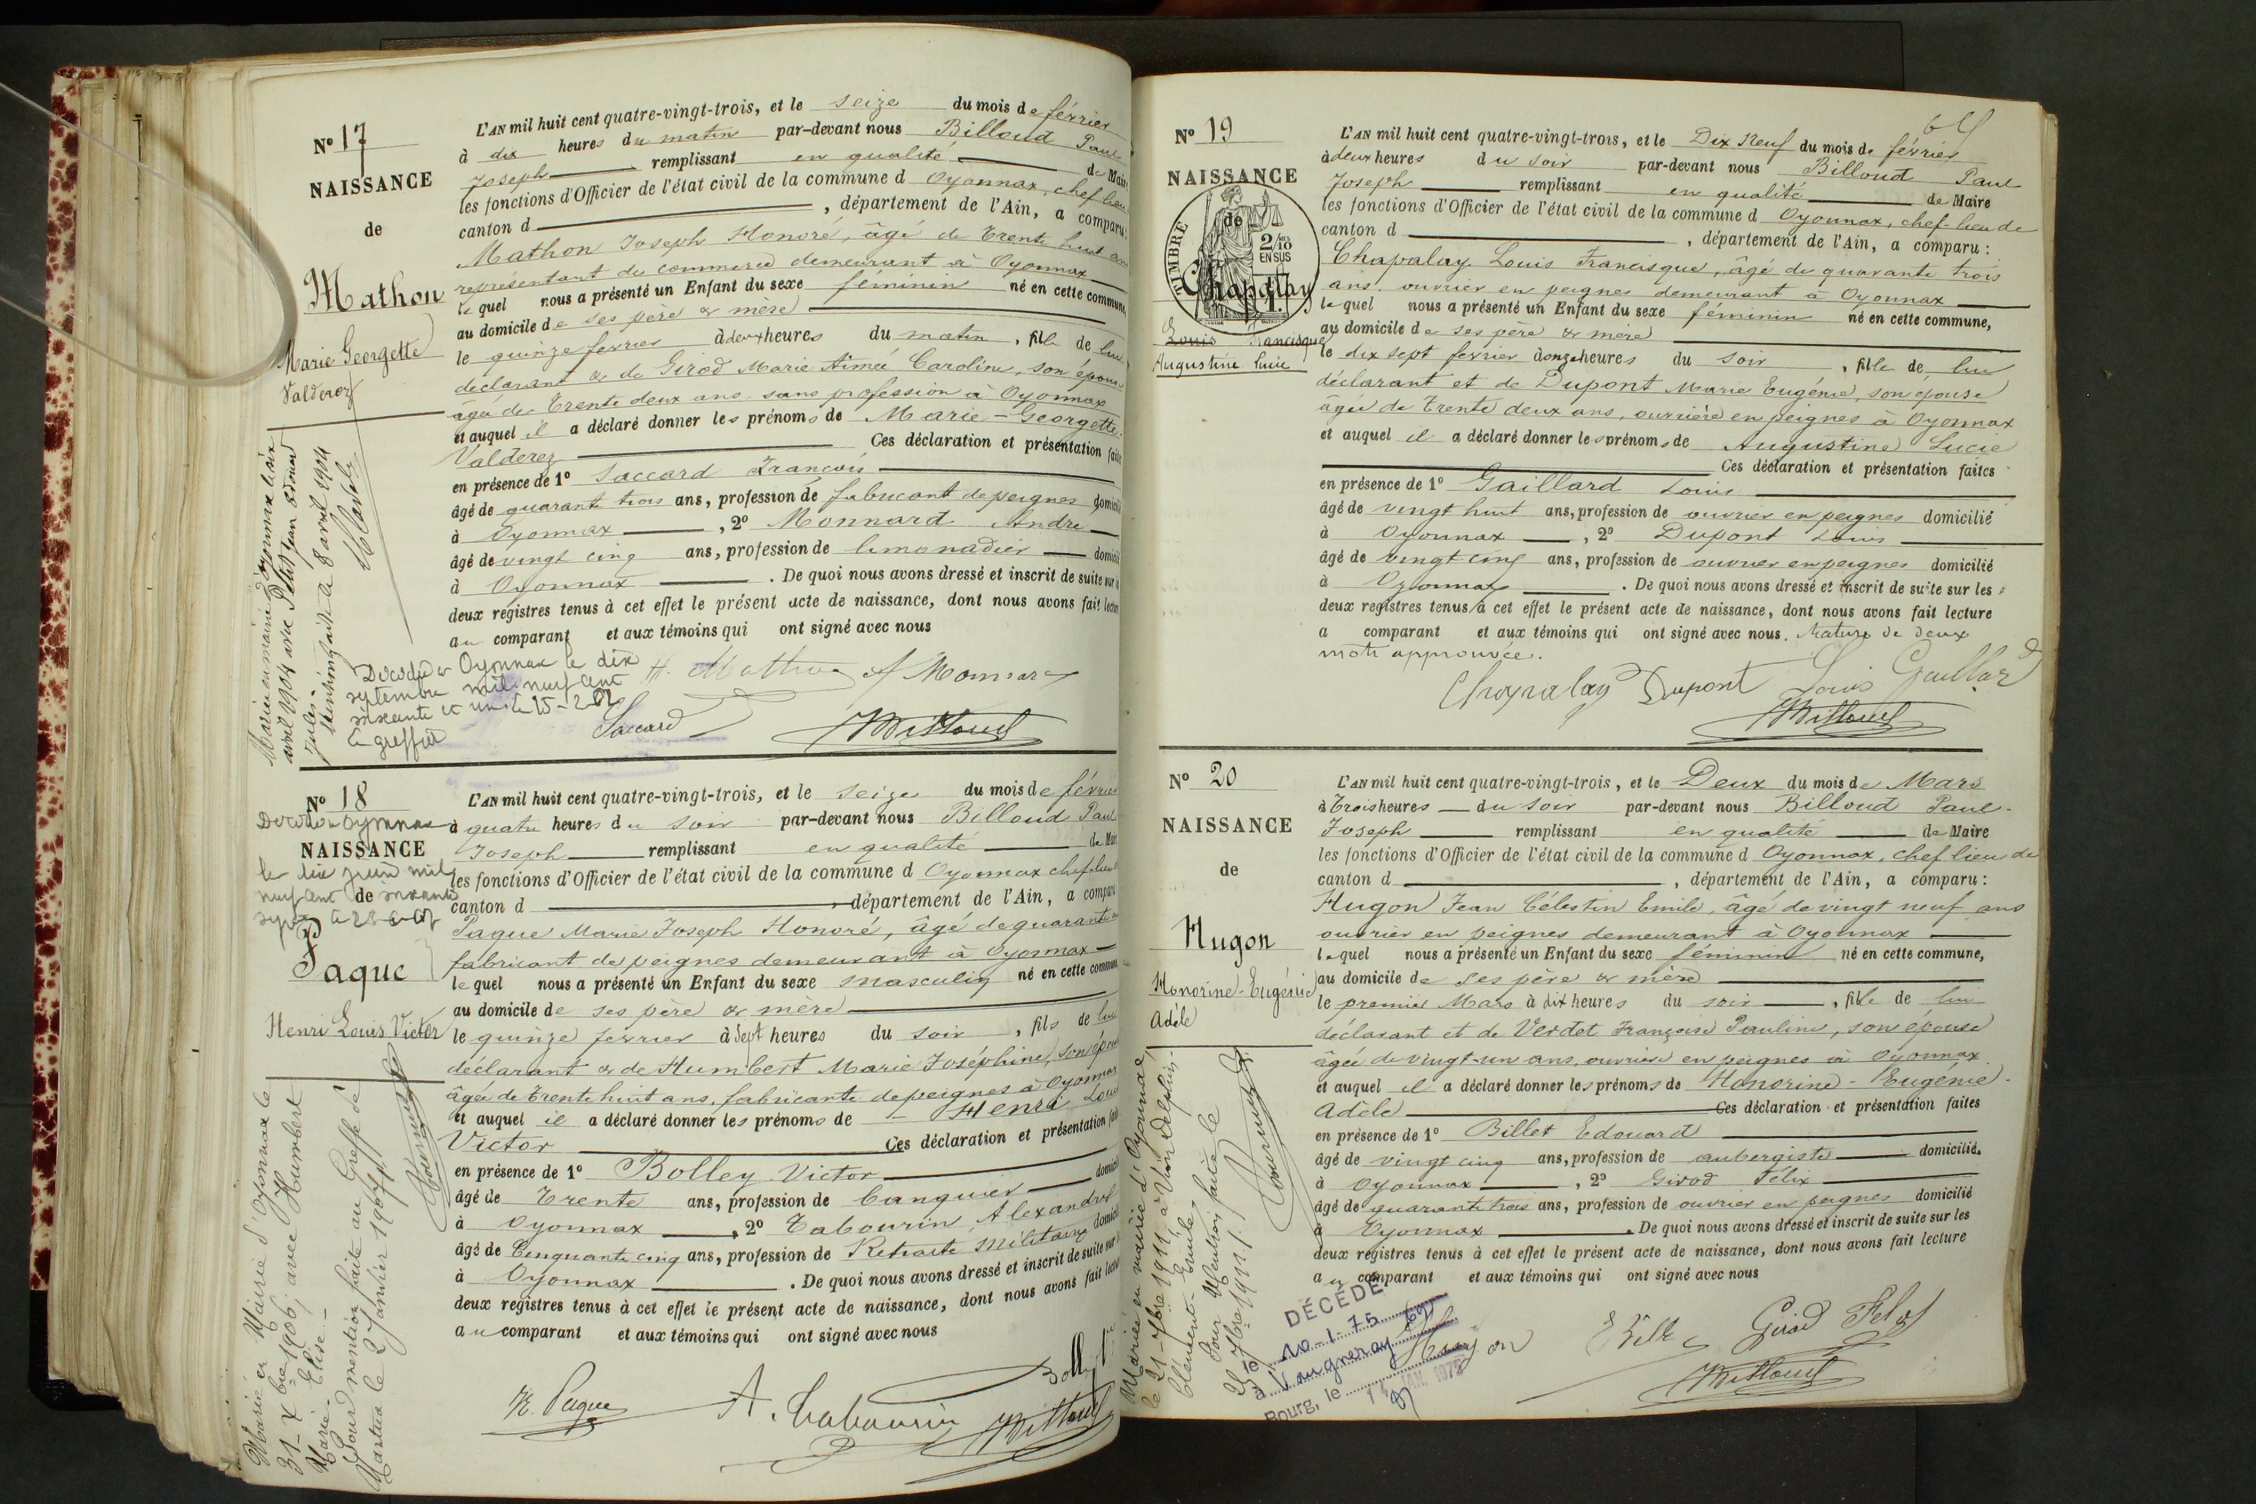 N° 17
NAISSANCE
de
Mathon
Marie Georgette
Valderez
L'AN mil huit cent quatre-vingt-trois, et le seize du mois de février
à dix heures du matin par-devant nous Billoud Paul
Joseph remplissant en qualité de Maire
les fonctions d'Officier de l'état civil de la commune d Oyonnax, chef lieu
canton d , département de l'Ain, a comparu:
Mathon Joseph Honoré, âgé de trente huit ans
représentant de commerce demeurant à Oyonnax
lequel nous a présenté un Enfant du sexe féminin né en cette commune,
au domicile de ses père & mère
le quinze fevrier à deux heures du matin, fille de lui
déclarant & de Girod Marie Aimée Caroline, son épouse
âgée de trente deux ans sans profession à Oyonnax
et auquel il a déclaré donner les prénoms de Marie-Georgette
Valderez Ces déclaration et présentation faites
en présence de 1° Saccard François
âgé de quarante trois ans, profession de fabricant de peignes domicilié
à Oyonnax , 2° Monnard André
âgé de vingt cinq ans, profession de limonadier domicilié
à Oyonnax . De quoi nous avons dressé et inscrit de suite sur
deux registres tenus à cet effet le présent acte de naissance, dont nous avons fait lecture
au comparant et aux témoins qui ont signé avec nous
H. Mathon A Monnard
Saccard
Billoud
Mariée en mairie d'Oyonnax le six
avril 1904 avec Jean Edouard
Jules
Mention faite le 8 avril 1904
Décédée à Oyonnax le dix
septembre mil neuf cent
soixante et un le 15-2-62
Le greffier
N° 18
Décédé à Oyonnax
NAISSANCE
le dix juin mil
neuf cent de soixante
sept le 28-6-67
Paque
Henri Louis Victor
L'AN mil huit cent quatre-vingt-trois, et le seize du mois de février
à quatre heures du soir par-devant nous Billoud Paul
Joseph remplissant en qualité de Maire
les fonctions d'Officier de l'état civil de la commune d Oyonnax chef lieu
canton d , département de l'Ain, a comparu
Paque Marie Joseph Honoré, âgé de quarante
fabricant de peignes demeurant à Oyonnax
lequel nous a présenté un Enfant du sexe masculin né en cette commune
au domicile de ses père & mère
le quinze fevrier à sept heures du soir , fils de lui
déclarant & de Humbert Marie Joséphine, son épouse
âgée de trente huit ans, fabricante de peignes à Oyonnax
et auquel il a déclaré donner les prénoms de - Henri Louis
Victor Ces déclaration et présentation faites
en présence de 1° Bolley Victor
âgé de Trente ans, profession de banquier domicilié
à Oyonnax , 2° Tabourin Alexandre
âgé de Cinquante cinq ans, profession de Retraité Militaire domicilié
à Oyonnax . De quoi nous avons dressé et inscrit de suite sur
deux registres tenus à cet effet le présent acte de naissance, dont nous avons fait lecture
au comparant et aux témoins qui ont signé avec nous
H. Paque A. Tabourin Bolley
Billoud
Marié en Mairie d'Oyonnax le
31-Xbre 1906, avec Humbert
Marie-Elise.-
Pour mention faite au Greffe de
Nantua le 2 Janvier 1907
N° 19
NAISSANCE
TIMBRE
de
2/10
EN SUS
Chapalay
Louis Francisque
Augustine Lucie
L'AN mil huit cent quatre-vingt-trois, et le Dix Neuf du mois de février
à deux heures du soir par-devant nous Billoud Paul
Joseph remplissant en qualité de Maire
les fonctions d'Officier de l'état civil de la commune d Oyonnax, chef-lieu de
canton d , département de l'Ain, a comparu:
Chapalay Louis Francisque, âgé de quarante trois
ans, ouvrier en peignes demeurant à Oyonnax
lequel nous a présenté un Enfant du sexe féminin né en cette commune,
au domicile de ses père & mère
le dix sept fevrier à onze heures du soir , fille de lui
déclarant et de Dupont Marie Eugénie, son épouse
âgée de trente deux ans, ouvrière en peignes à Oyonnax
et auquel il a déclaré donner les prénoms de Augustine Lucie
Ces déclaration et présentation faites
en présence de 1° Gaillard Louis
âgé de vingt huit ans, profession de ouvrier en peignes domicilié
à Oyonnax , 2° Dupont Louis
âgé de vingt cinq ans, profession de ouvrier en peignes domicilié
à Oyonnax . De quoi nous avons dressé et inscrit de suite sur les
deux registres tenus à cet effet le présent acte de naissance, dont nous avons fait lecture
a comparant et aux témoins qui ont signé avec nous. Rature de deux
mots approuvée.
Chapalay Dupont Louis Gaillard
Billoud
N° 20
NAISSANCE
de
Hugon
Honorine-Eugénie
Adèle
L'AN mil huit cent quatre-vingt-trois, et le Deux du mois de Mars
à Trois heures du soir par-devant nous Billoud Paul
Joseph remplissant en qualité de Maire
les fonctions d'Officier de l'état civil de la commune d Oyonnax, chef lieu de
canton d , département de l'Ain, a comparu:
Hugon Jean Célestin Emile, âgé de vingt neuf ans
ouvrier en peignes demeurant à Oyonnax
lequel nous a présenté un Enfant du sexe féminin né en cette commune,
au domicile de ses père & mère
le premier Mars à dix heures du soir , fille de lui
déclarant et de Verdet Françoise Pauline, son épouse
âgée de vingt-un ans, ouvrière en peignes à Oyonnax
et auquel il a déclaré donner les prénoms de Honorine-Eugénie-
Adèle Ces déclaration et présentation faites
en présence de 1° Billet Edouard
âgé de vingt cinq ans, profession de aubergiste domicilié
à Oyonnax , 2° Girod Félix
âgé de quarante trois ans, profession de ouvrier en peignes domicilié
à Oyonnax . De quoi nous avons dressé et inscrit de suite sur les
deux registres tenus à cet effet le présent acte de naissance, dont nous avons fait lecture
au comparant et aux témoins qui ont signé avec nous
Hugon Billet Girod Felix
Billoud
Mariée en mairie d'Oyonnax
le 21-7bre 1911, à
Clément-Emile.
Pour Mention faite le
7bre 1911
DÉCÉDÉ
le 10-1-75
à Vaugneray 69
Bourg, le 14 JAN. 1975